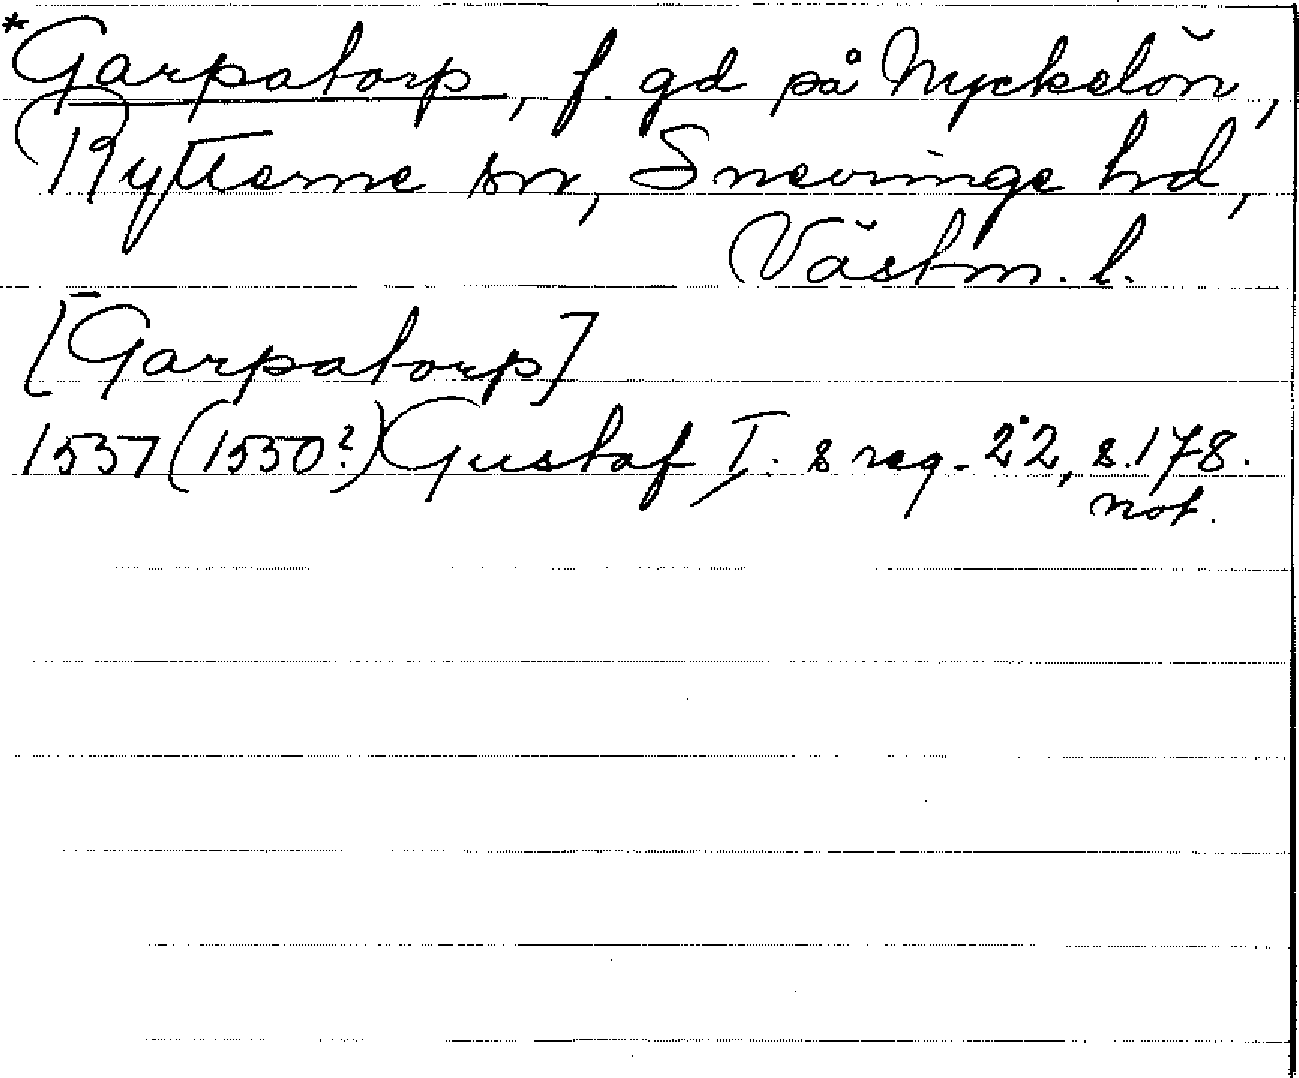 *Garpatorp, f. gd på Nyckelön,
Rytterne sn, Snevringe hd,
Västm. l.
[Garpatorp]
1537 (1550?) Gustaf I:s reg. 22, s. 178.
not.